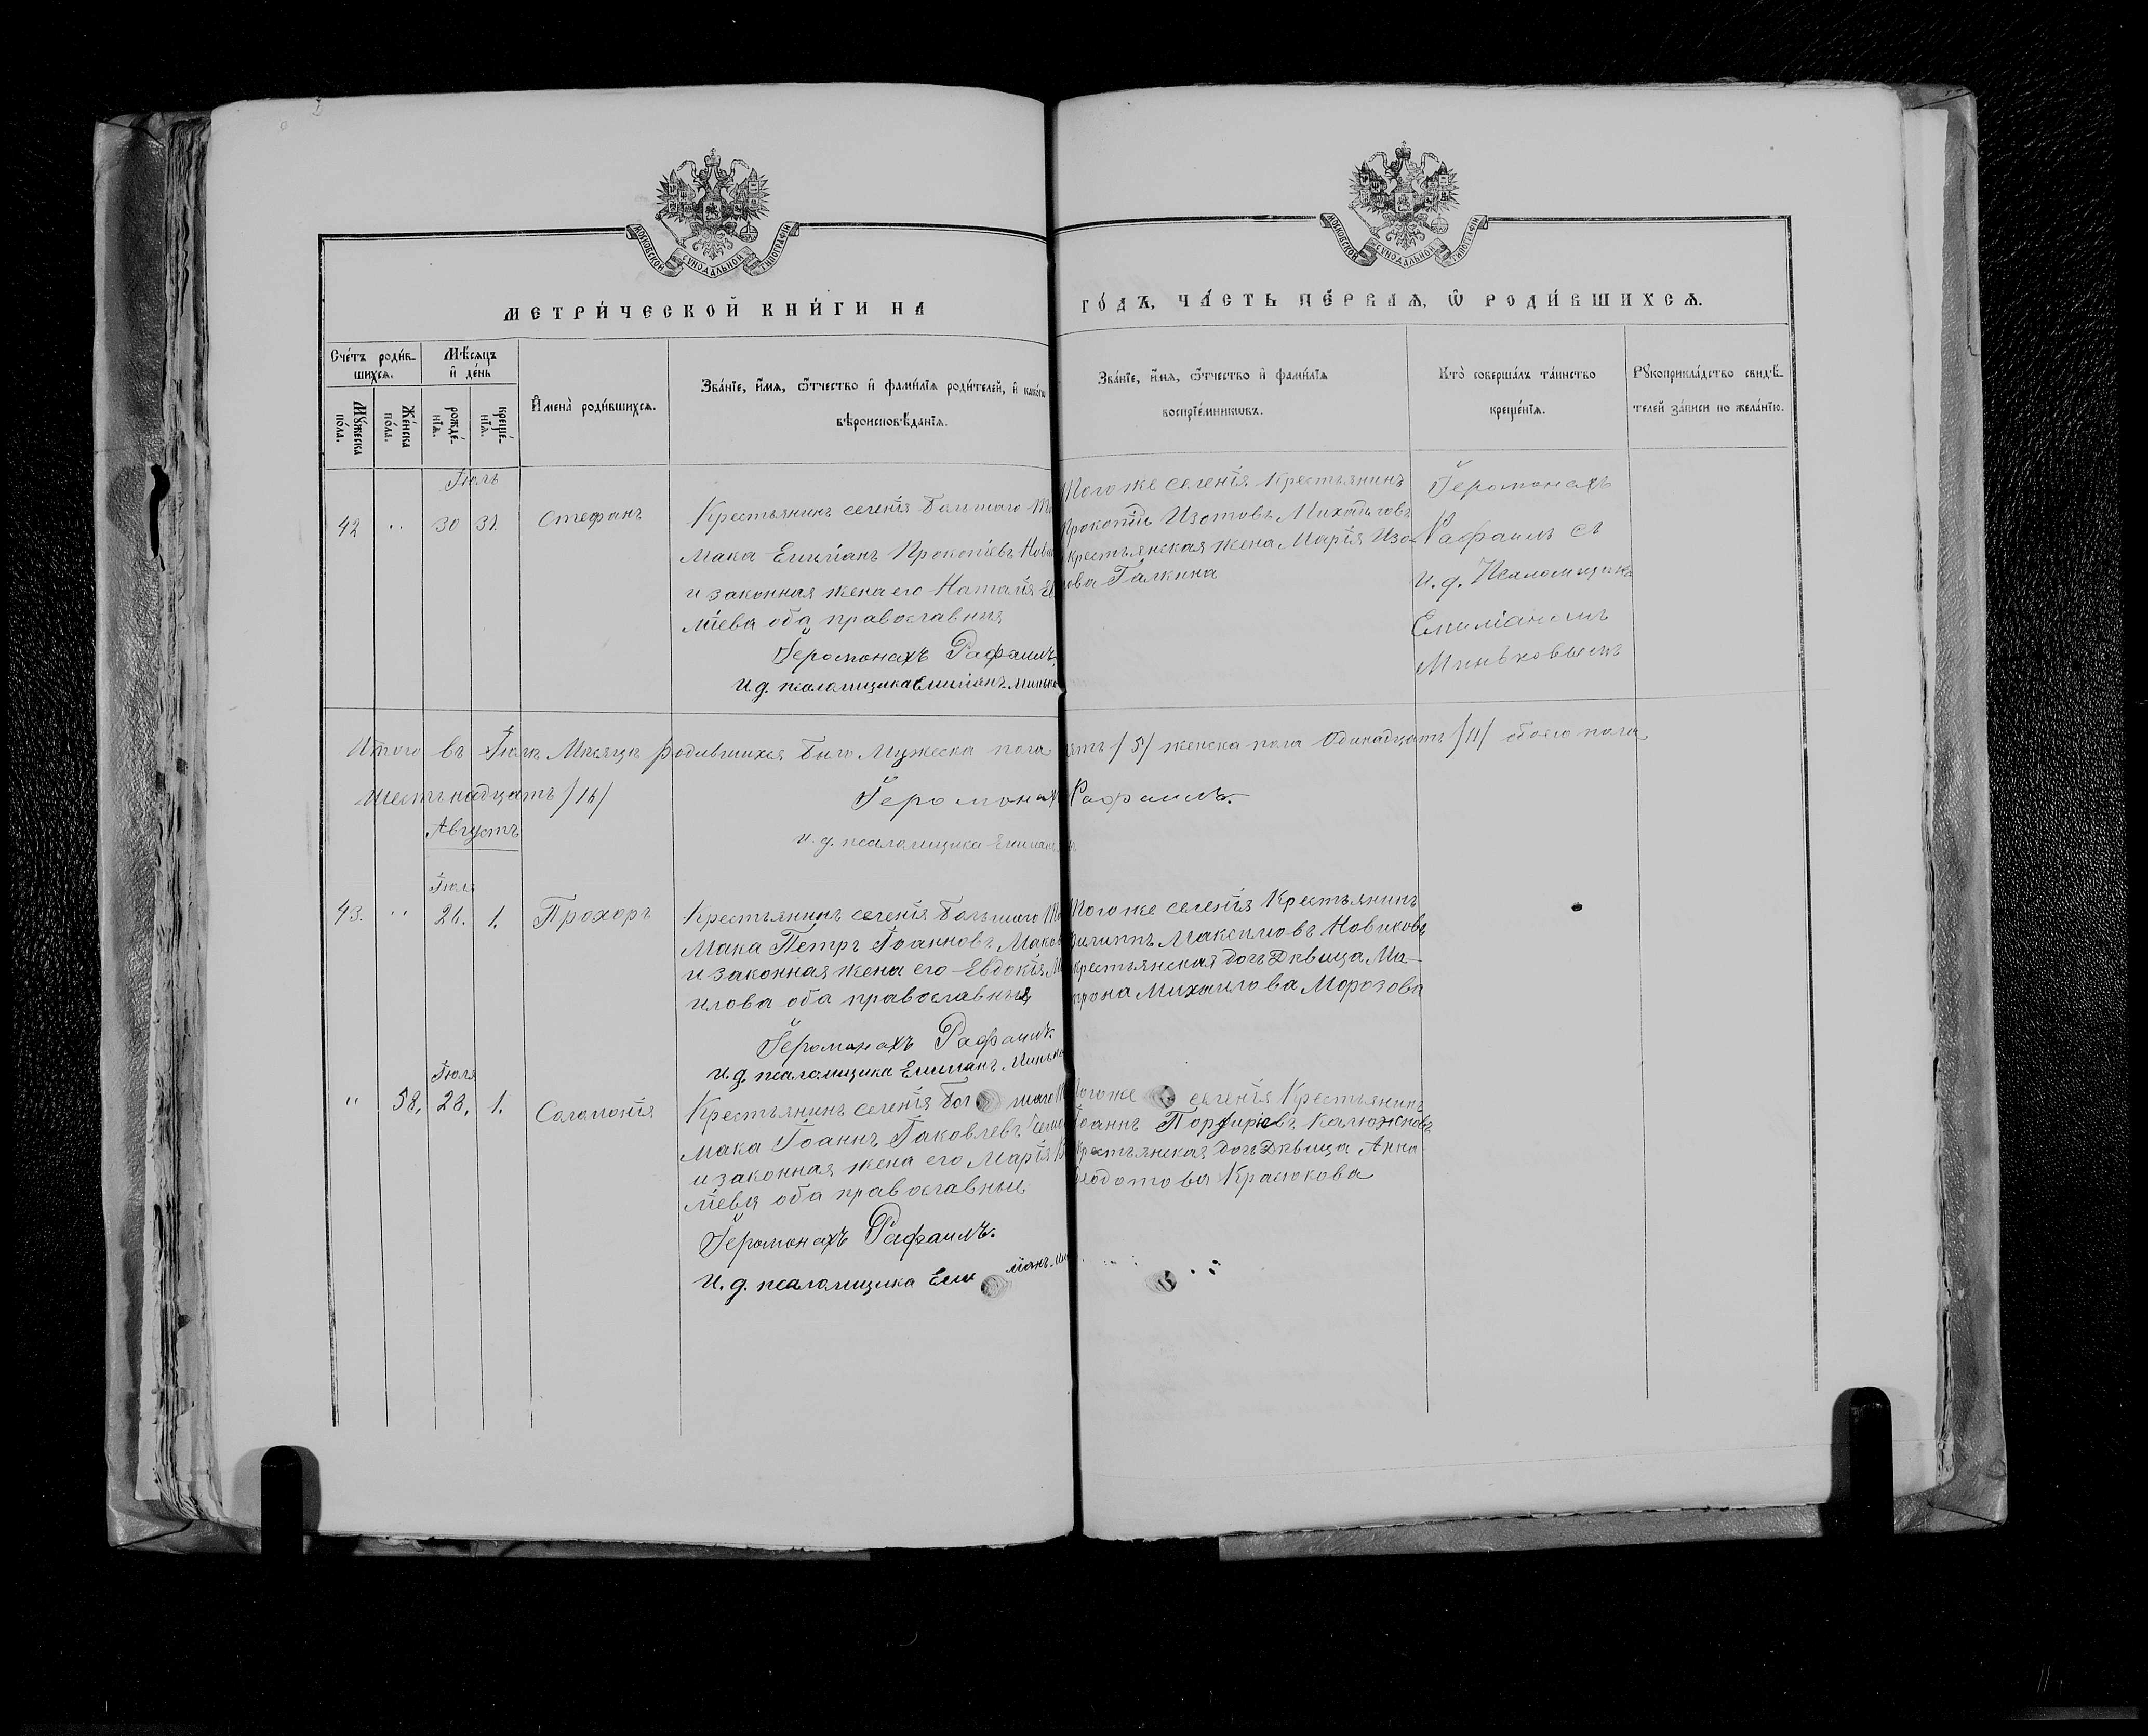 МОСКОВСКОЙ СУНОДАЛЬНОЙ ТИПОГРАФІИ
МОСКОВСКОЙ СУНОДАЛЬНОЙ ТИПОГРАФІИ
МЕТРИ́ЧЕСКОЙ КНИ́ГИ НА
ГО́ДЪ, ЧА́СТЬ ПЕ́РВАѦ, Ѡ РОДИ́ВШИХСѦ.
Сче́тъ роди́в-
шихсѧ.
Мꙋ́жеска по́ла.
Же́нска по́ла.
Мѣ́сѧцъ
и҆ де́нь
рожде́-
нїѧ.
креще́-
нїѧ.
И҆мена̀ роди́вшихсѧ.
Зва́нїе, и҆́мѧ, ѻ҆́тчество и҆ фами́лїѧ роди́телей, и҆ како́гѡ
вѣроисповѣ́данїѧ.
Зва́нїе, и҆́мѧ, ѻ҆́тчество и҆ фами́лїѧ
воспрїе́мникѡвъ.
Кто̀ соверша́лъ та́инство
креще́нїѧ.
Рꙋкоприкла́дство свидѣ́-
телей за́писи по жела́нїю.
Іюль
42 " 30 31. Стефанъ
Крестьянинъ селенія Большого То
мака Емиліанъ Прокопіевъ Нови
и законная жена его Наталія
міева оба православныя
Іеромонахъ Рафаилъ.
И. д. псаломщика Емиліанъ Минько
Того же селенія Крестьянинъ
Прокопій Изотовъ Михайловъ
крестьянская жена Марія Изо-
това Галкина
Іеромонахъ
Рафаилъ съ
и. д. Псаломщика
Емиліаномъ
Миньковымъ
Итого въ Іюлѣ Мѣсяцѣ родившихся было Мужеска пола пять /5/ женска пола Одинадцать /11/ обоего пола
Шестьнадцать /16/
Іеромонахъ Рафаилъ.
И. д. псаломщика Емиліанъ
Августъ
Іюля
43. " 26. 1. Прохоръ
Крестьянинъ селенія Большого То
Мака Петръ Іоанновъ Маков
и законная жена его Евдокія М
илова оба православныя
Іеромонахъ Рафаилъ.
И. д. псаломщика Емиліанъ Минько
Того же селенія Крестьянинъ
Филиппъ Максимовъ Новиковъ
крестьянская дочь Дѣвица Ма-
трона Михаилова Морозова
Іюля
" 58. 28. 1. Саламонія
Крестьянинъ селенія Большаго То
мака Іоаннъ Іаковлевъ
и законная жена его Марія В
ліева оба православные
Іеромонахъ Рафаилъ.
И. д. псаломщика Емиліанъ Ми
Того же селенія Крестьянинъ
Іоаннъ Порфиріевъ Калюжновъ
Крестьянская дочь Дѣвица Анна
Ѳеодотова Красюкова